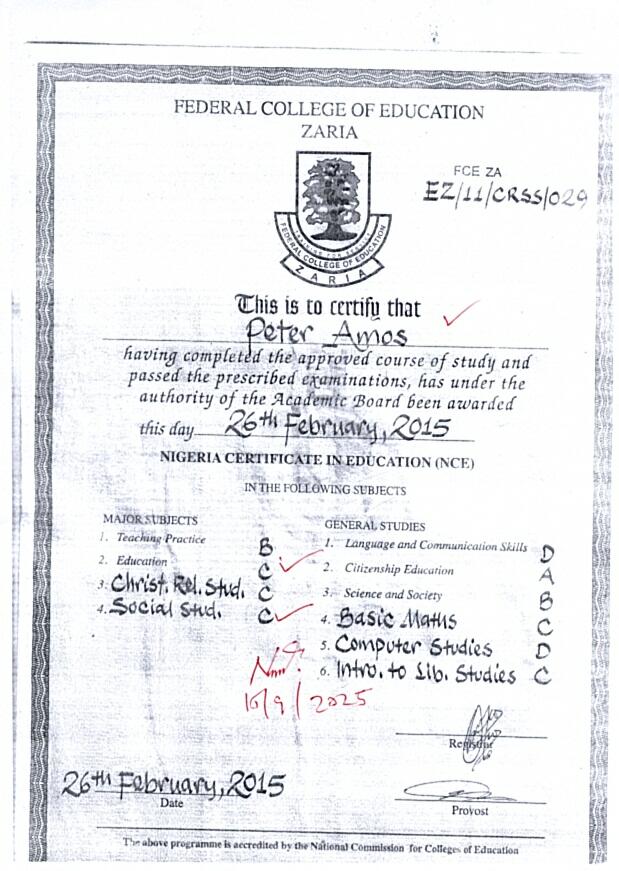 FEDERAL COLLEGE OF EDUCATION
ZARIA
FCE ZA
EZ/11/CRSS/029
FEDERAL COLLEGE OF EDUCATION
ZARIA
This is to certify that
Peter Amos
having completed the approved course of study and
passed the prescribed examinations, has under the
authority of the Academic Board been awarded
this day 26th February, 2015
NIGERIA CERTIFICATE IN EDUCATION (NCE)
IN THE FOLLOWING SUBJECTS
MAJOR SUBJECTS
1. Teaching Practice B
2. Education C
3. Christ. Rel. Stud. C
4. Social Stud. C
GENERAL STUDIES
1. Language and Communication Skills D
2. Citizenship Education A
3. Science and Society B
4. Basic Maths C
5. Computer Studies D
6. Intro. to Lib. Studies C
/9/2025
Registrar
26th February, 2015
Date
Provost
The above programme is accredited by the National Commission for Colleges of Education